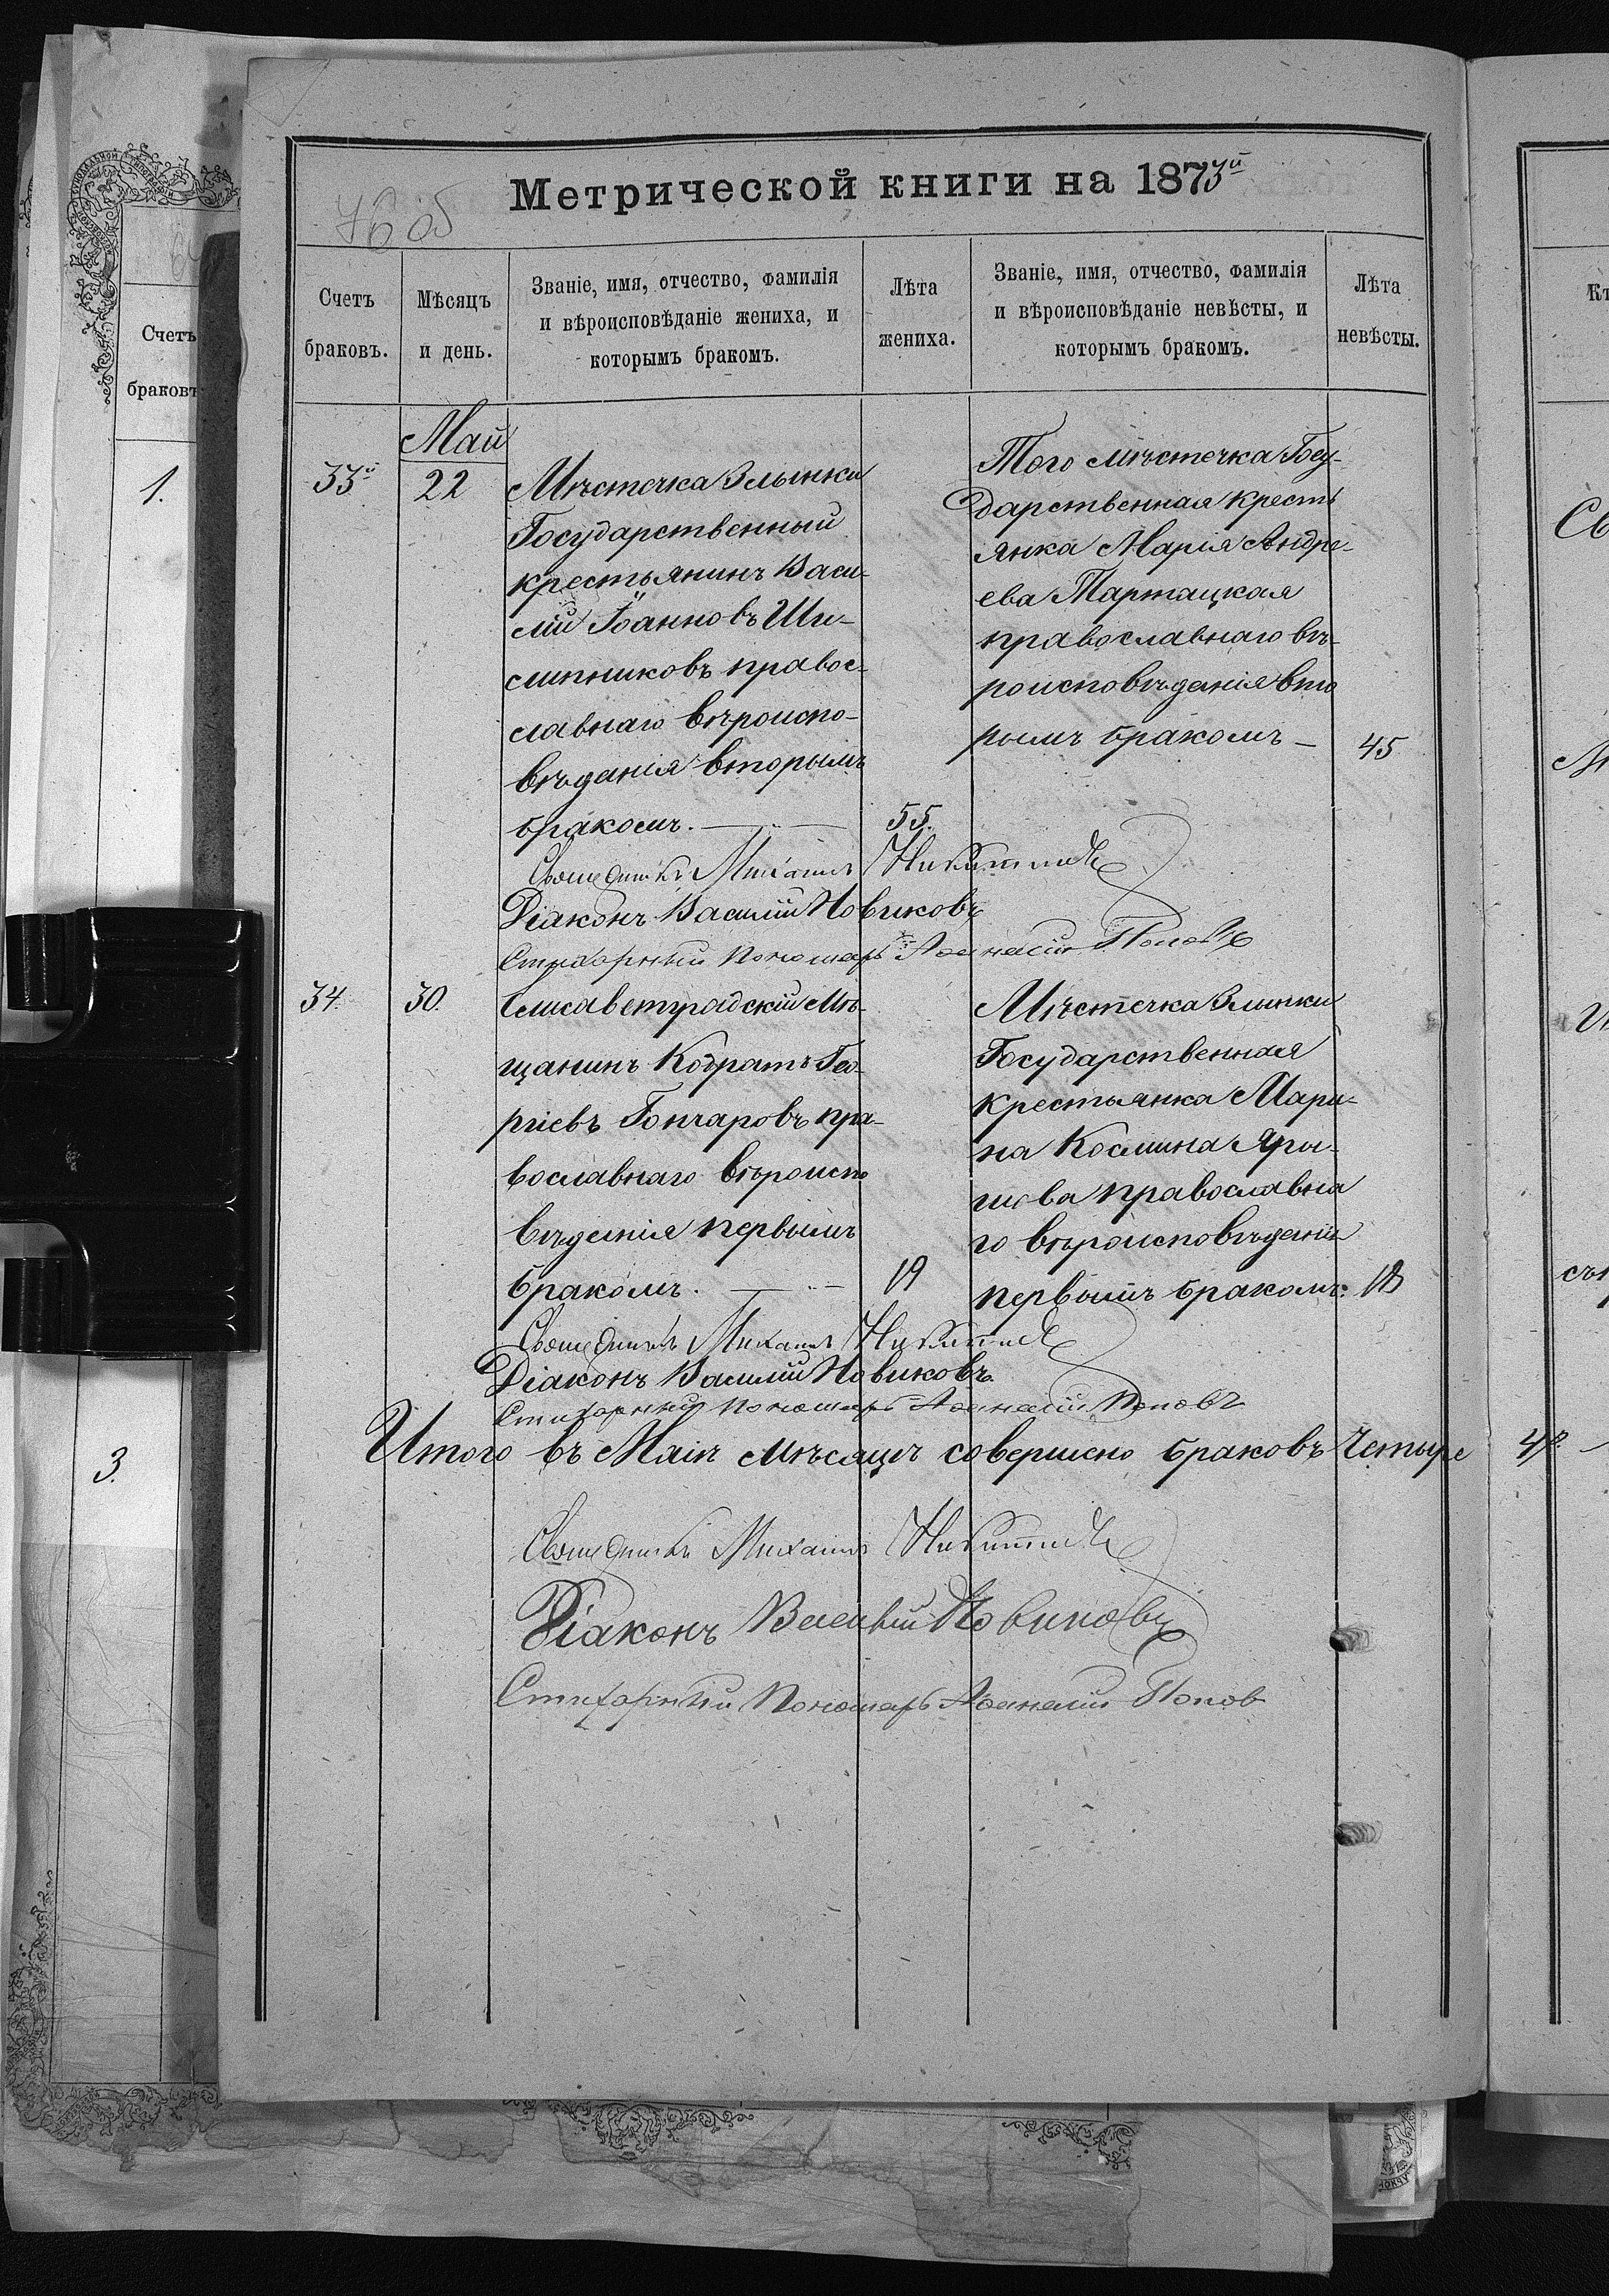 76 об
Метрической книги на 1873й
Счетъ браковъ.
Мѣсяцъ и день.
Званіе, имя, отчество, фамилія
и вѣроисповѣданіе жениха, и
которымъ бракомъ.
Лѣта жениха.
Званіе, имя, отчество, фамилія
и вѣроисповѣданіе невѣсты, и
которымъ бракомъ.
Лѣта невѣсты.
Май
33й
22
Мѣстечка Злынки
Государственный
крестьянинъ Васи-
лій Іоанновъ Ши-
слипниковъ правос-
славнаго вѣроиспо-
вѣданія вторымъ
бракомъ.
55.
Того мѣстечка Госу-
дарственная кресть
янка Марія Андре-
ева Тартацкая
православнаго вѣ-
роисповѣданія вто
рымъ бракомъ
45
Священникъ Михаилъ Никитинъ
Діаконъ Василій Новиковъ
Стихарный Пономарь Аѳанасій Поповъ
34.
30.
Елисаветградскій мѣ-
щанинъ Кодратъ Гео-
ргіевъ Гончаровъ пра-
вославнаго вѣроиспо
вѣданія первымъ
бракомъ.
19
Мѣстечка Злынки
Государственная
крестьянка Мари-
на Космина Яро-
шева православна
го вѣроисповѣданія
первымъ бракомъ.
18
Священникъ Михаилъ Никитинъ
Діаконъ Василій Новиковъ
Стихарный Пономарь Аѳанасій Поповъ
Итого въ Маіѣ мѣсяцѣ совершено браковъ Четыре 4.
Священникъ Михаилъ Никитинъ
Діаконъ Василій Новиковъ
Стихарный Пономарь Аѳанасій Попов
Счетъ
браковъ
1.
3.